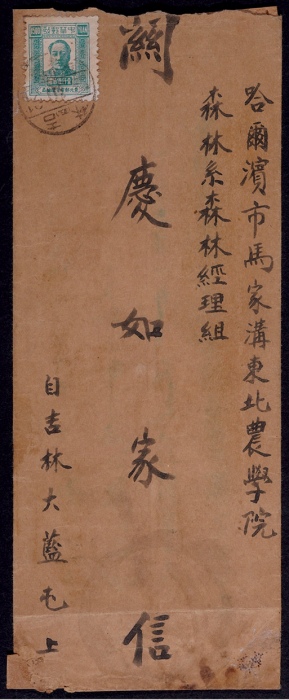 哈爾濱市馬家溝東北農學院
森林系森林經理組
關慶如家信
自吉林大藍屯上